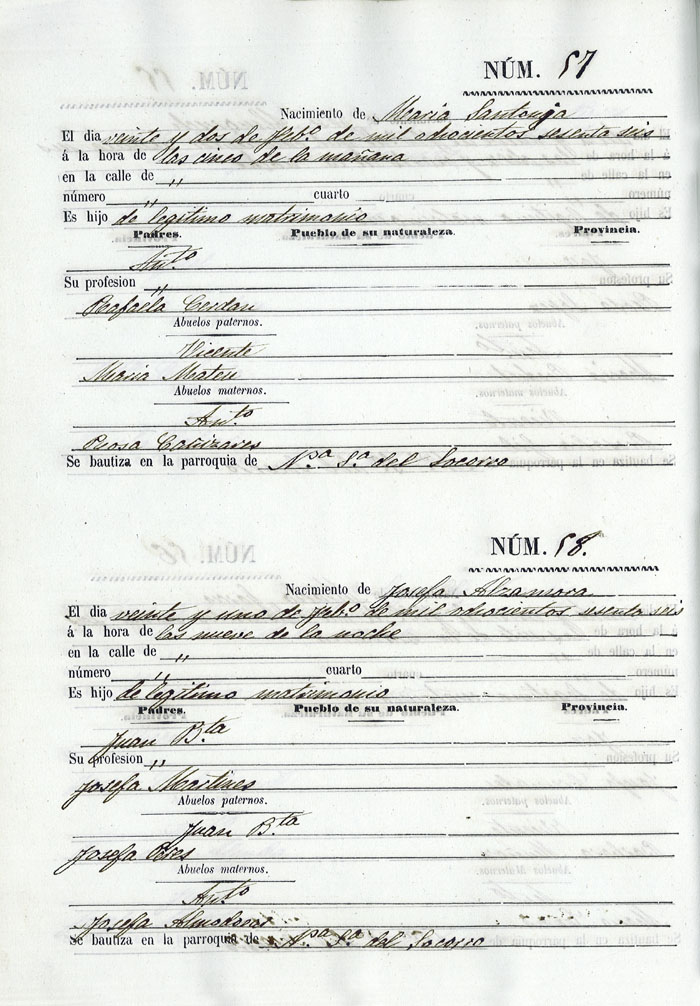 NÚM. 57
Nacimiento de Maria Santonja
El dia veinte y dos de Feb.º de mil ochocientos sesenta seis
á la hora de las cinco de la mañana
en la calle de "
número " cuarto
Es hijo de legitimo matrimonio
Padres. Pueblo de su naturaleza. Provincia.
Ant.to
Su profesion "
Rafaela Cerdan
Abuelos paternos.
Vicente
Maria Mateu
Abuelos maternos.
Ant.to
Rosa Cañizares
Se bautiza en la parroquia de N.ª S.ª del Socorro
NÚM. 58.
Nacimiento de Josefa Alzamora
El dia veinte y uno de Feb.º de mil ochocientos sesenta seis
á la hora de las nueve de la noche
en la calle de "
número " cuarto
Es hijo de legitimo matrimonio
Padres. Pueblo de su naturaleza. Provincia.
Juan B.ta
Su profesion "
Josefa Martines
Abuelos paternos.
Juan B.ta
Josefa Peres
Abuelos maternos.
Ant.to
Josefa Almodovar
Se bautiza en la parroquia de N.ª S.ª del Socorro